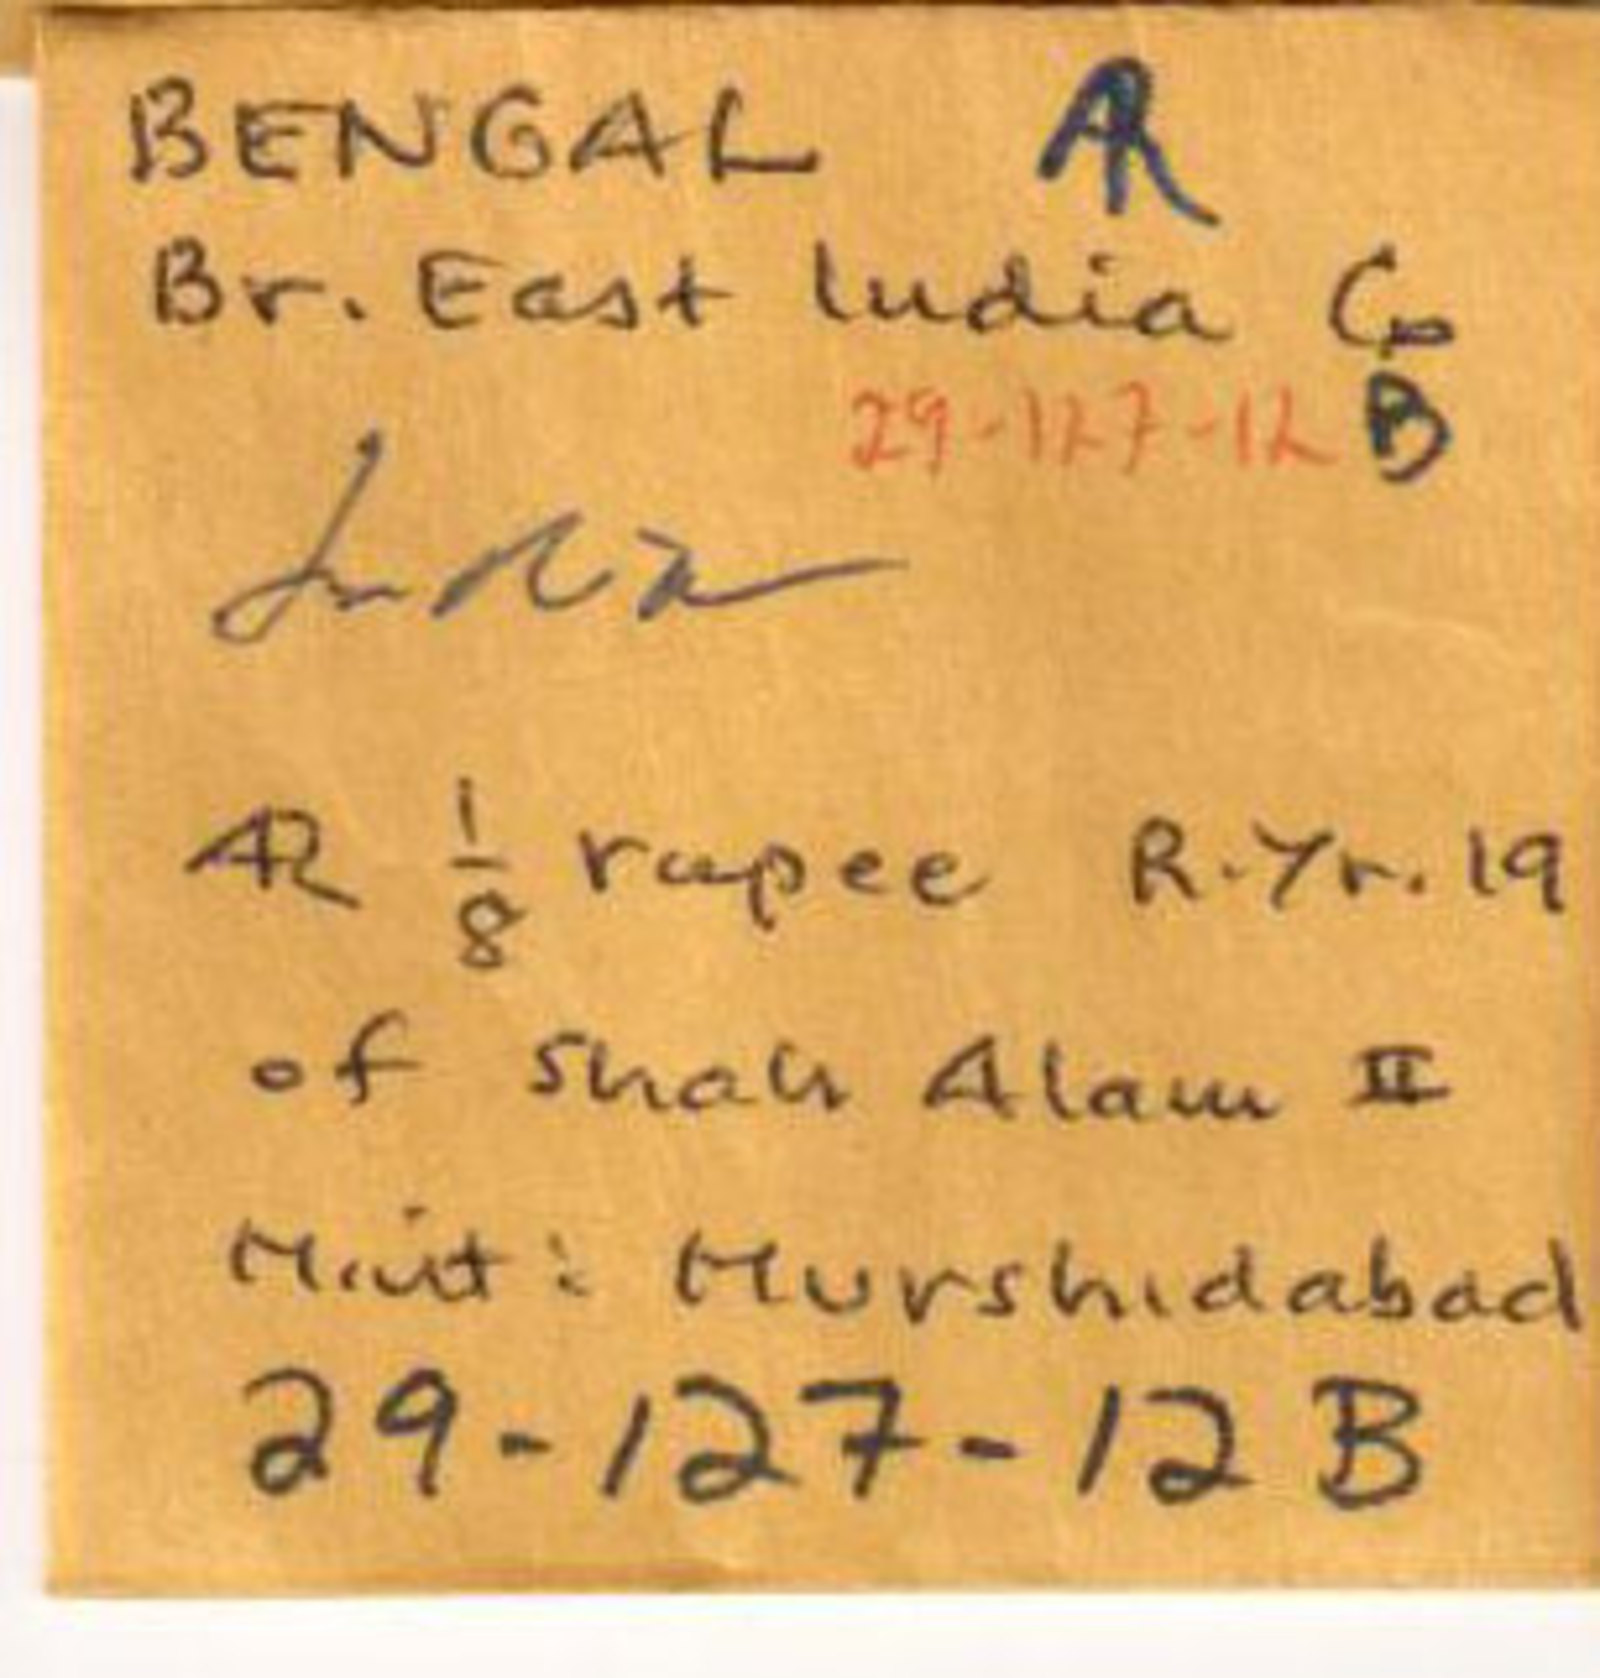 BENGAL AR
Br. East India Co
29-127-12 B
India
AR 1/8 rupee R.Yr. 19
of Shah Alam II
Mint: Murshidabad
29-127-12 B